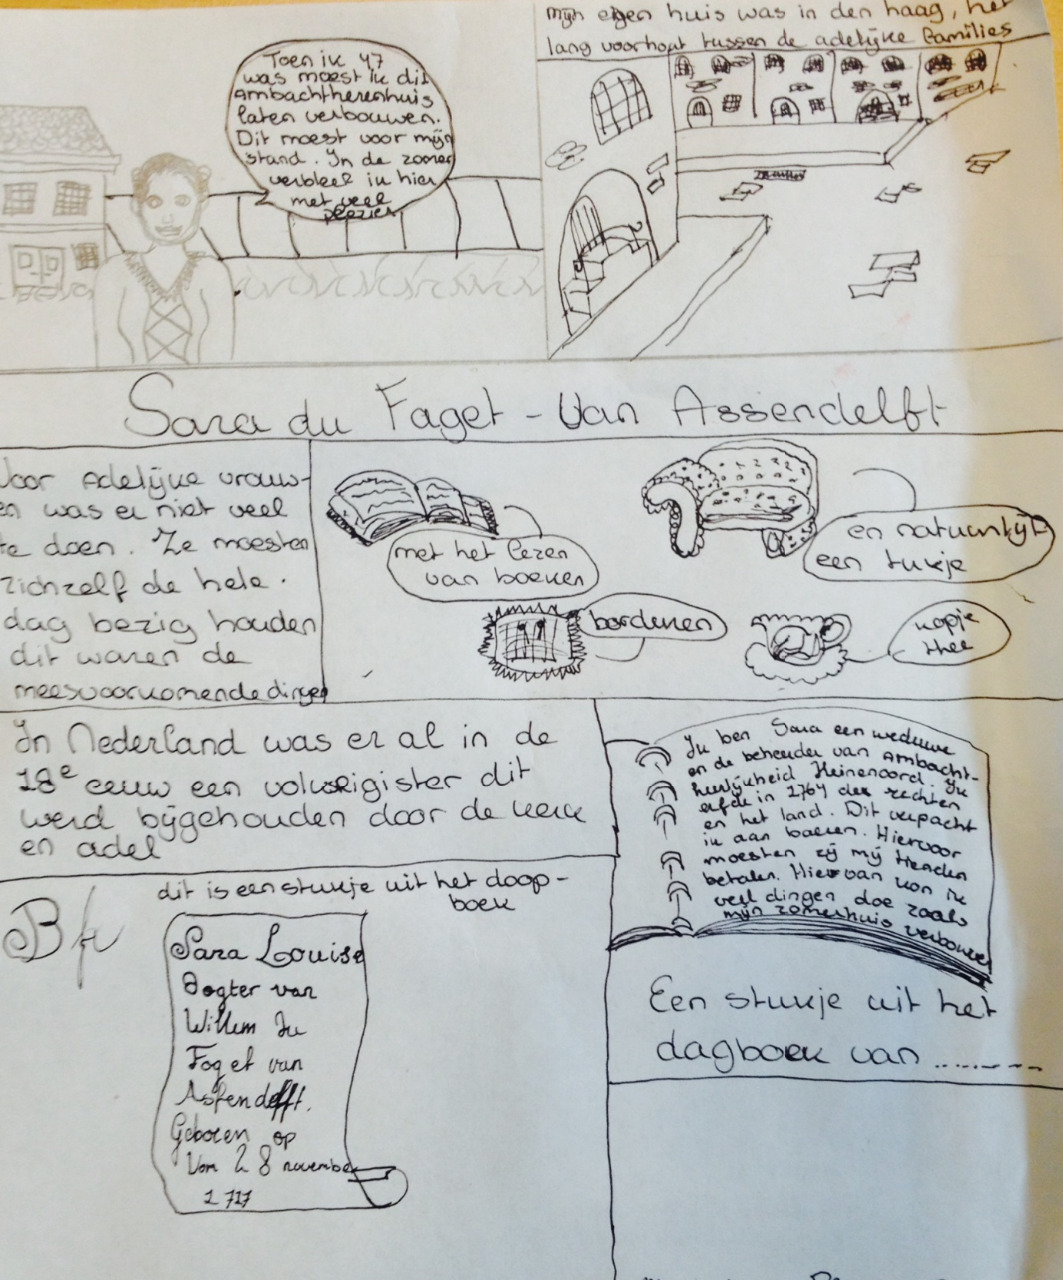 Toen ik 47
was moest ik dit
Ambachtherenhuis
laten verbouwen.
Dit moest voor mijn
stand. In de zomer
verbleef ik hier
met veel
plezier
mijn eigen huis was in den haag, het
lang voorhout tussen de adelijke families
Sara du Faget - van Assendelft
Voor Adelijke vrouw-
en was er niet veel
te doen. Ze moesten
zichzelf de hele
dag bezig houden
dit waren de
meesvoorkomende dingen
met het lezen
van boeken
en natuurlijk
een tukje
borduren
kopje
thee
In Nederland was er al in de
18e eeuw een volkregister dit
werd bijgehouden door de kerk
en adel
Ik ben Sara een weduwe
en de beheerder van Ambacht-
herlijkheid Heinenoord. Ik
erfde in 1764 de rechten
en het land. Dit verpacht
ik aan boeren. Hiervoor
moesten zij mij
betalen. Hiervan kon ik
veel dingen doe zoals
mijn zomerhuis verbouwen
Een stukje uit het
dagboek van ........
dit is een stukje uit het doop-
boek
Sara Louise
Dogter van
Willem du
Faget van
Assendelft.
Geboren op
28 november
1717